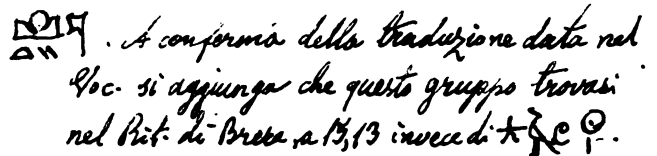 . A conferma della traduzione data nel
Voc. si aggiunga che questo gruppo trovasi
nel Rit. di Brera, a 15,13 invece di